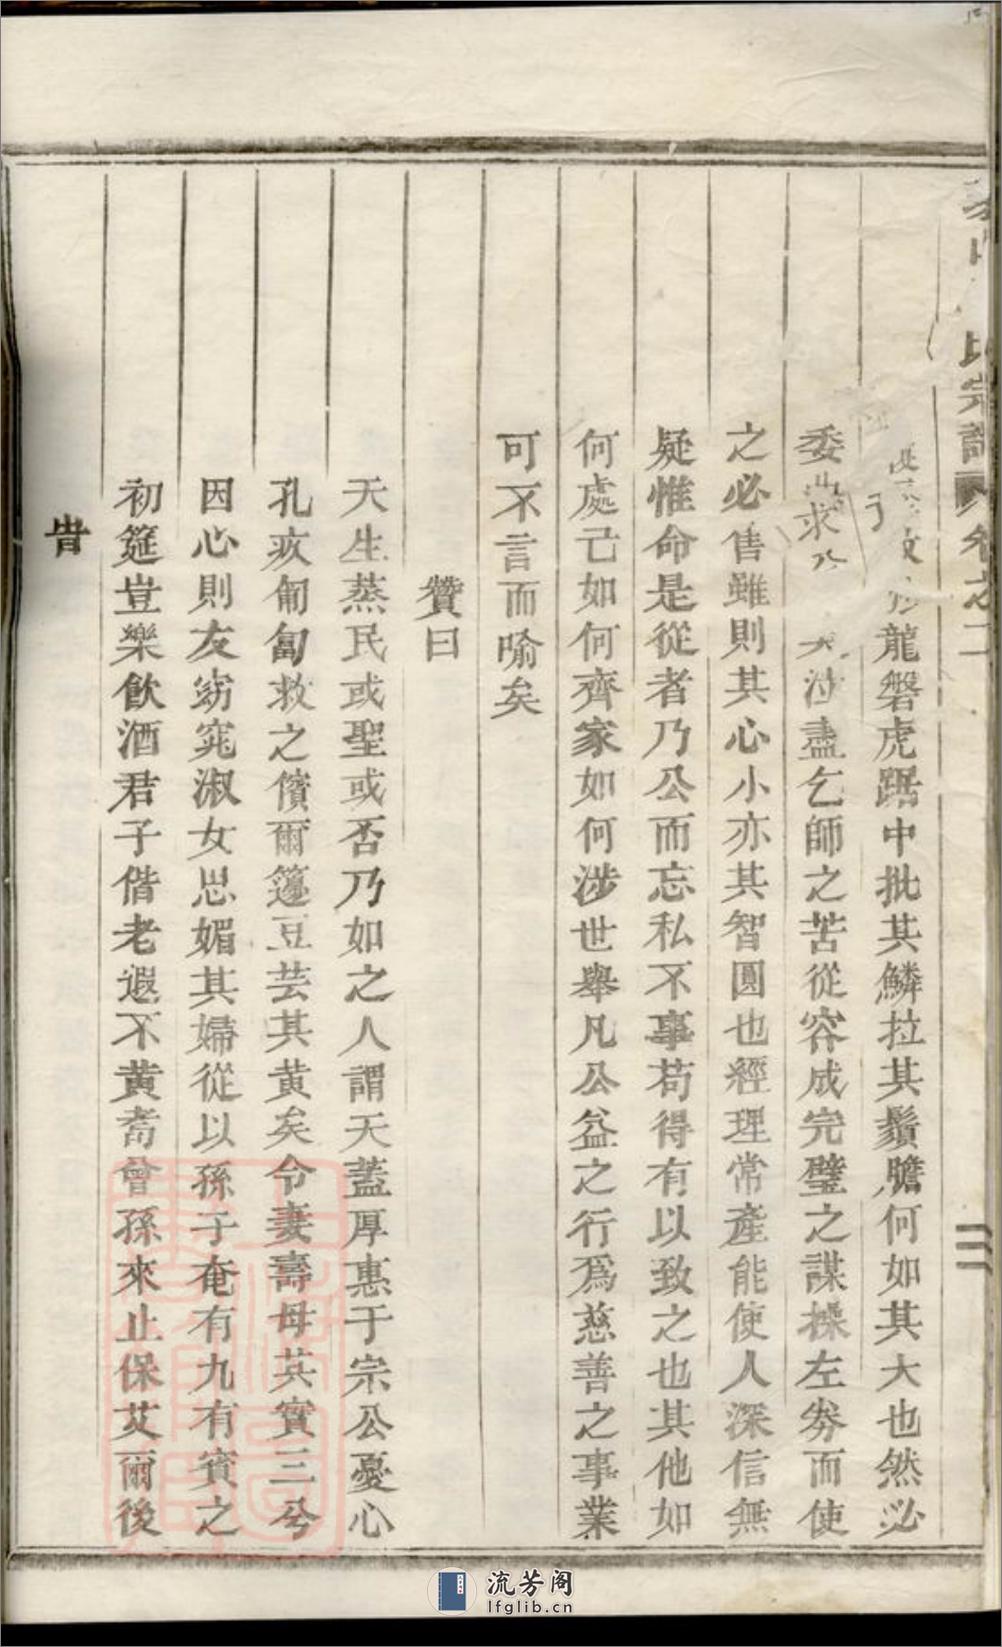 氏宗譜 卷之二
龍磐虎踞中批其鱗拉其鬚膽何如其大也然必
委 求 涉盡乞師之苦從容成完璧之謀操左劵而使
之必售雖則其心小亦其智圓也經理常產能使人深信無
疑惟命是從者乃公而忘私不事苟得有以致之也其他如
何處己如何齊家如何涉世舉凡公益之行爲慈善之事業
可不言而喻矣
贊曰
天生蒸民或聖或否乃如之人謂天蓋厚惠于宗公憂心
孔疚匍匐救之儐爾籩豆芸其黄矣令妻壽母其實三兮
因心則友窈窕淑女思媚其婦從以孫子奄有九有賓之
初筵豈樂飲酒君子偕老遐不黄耇曾孫來止保艾爾後
旹
流芳阁
lfglib.cn